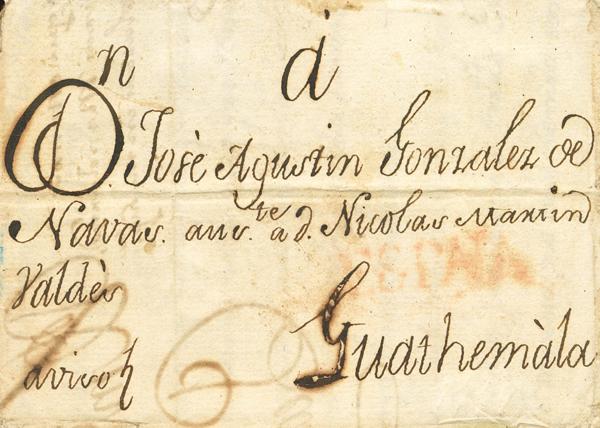 n d
D. Josè Agustin Gonzalez de
Navas. aus.te a d. Nicolas Martin
Valdès
ESPAÑA
Guathemàla
aviso